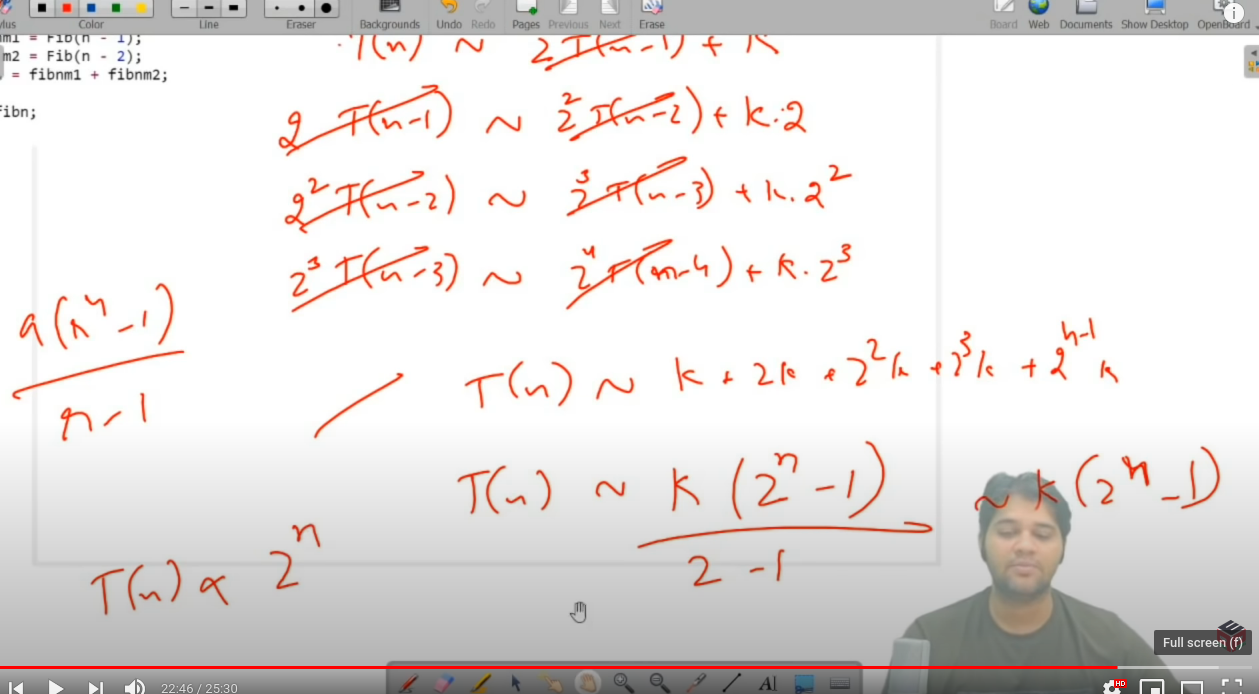 Color
Line
Eraser
Backgrounds
Undo
Redo
Pages
Previous
Next
Erase
Board
Web
Documents
Show Desktop
OpenBoard
m1 = Fib(n - 1);
m2 = Fib(n - 2);
= fibnm1 + fibnm2;
fibn;
T(n) ~ 2 T(n-1) + K
2 T(n-1) ~ 2² T(n-2) + k.2
2² T(n-2) ~ 2³ T(n-3) + k.2²
2³ T(n-3) ~ 2⁴ T(n-4) + k.2³
a(r^n - 1)
r-1
T(n) ~ k + 2k + 2²k + 2³k + 2^(n-1) k
T(n) ~ k (2^n - 1) ~ k (2^n - 1)
2 - 1
T(n) ∝ 2^n
Full screen (f)
22:46 / 25:30
HD